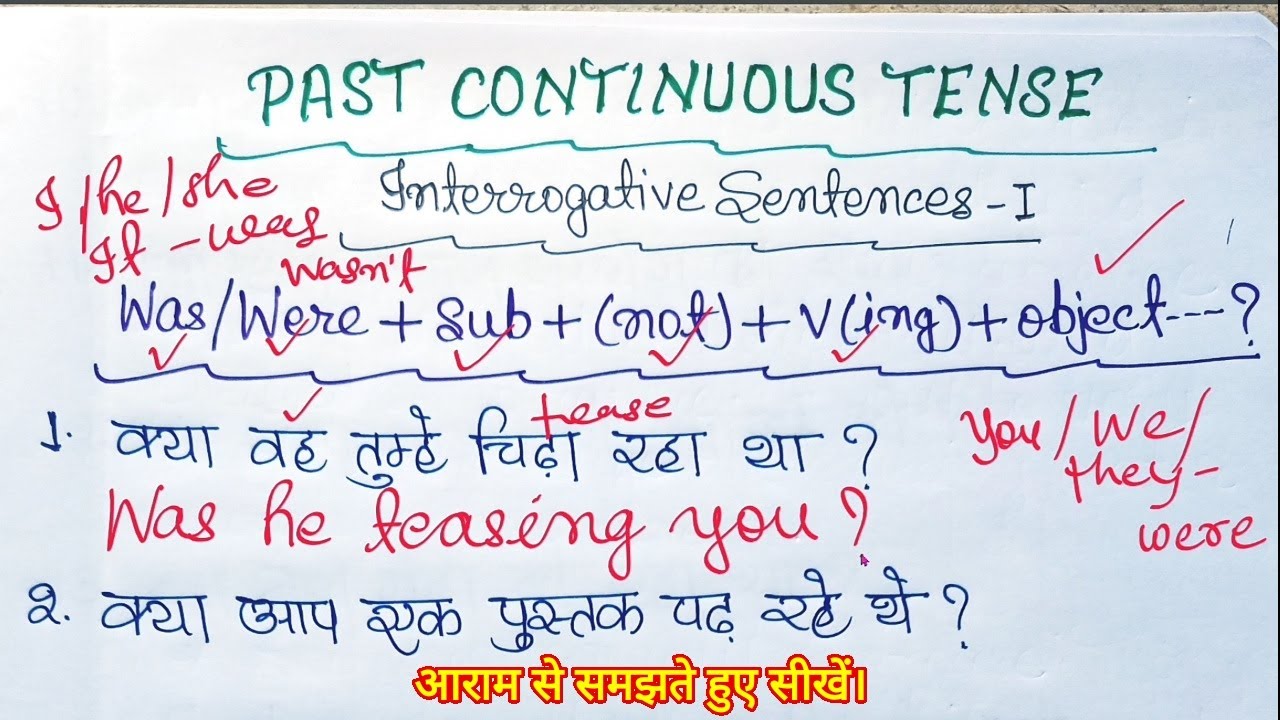 PAST CONTINUOUS TENSE
Interrogative Sentences - I
I/he/she
It - was
wasn't
Was/Were + Sub + (not) + V(ing) + object---?
1. क्या वह तुम्हे चिढ़ा रहा था ?
tease
You/We/
they-
were
Was he teasing you ?
२. क्या आप एक पुस्तक पढ़ रहे थे ?
आराम से समझते हुए सीखें।